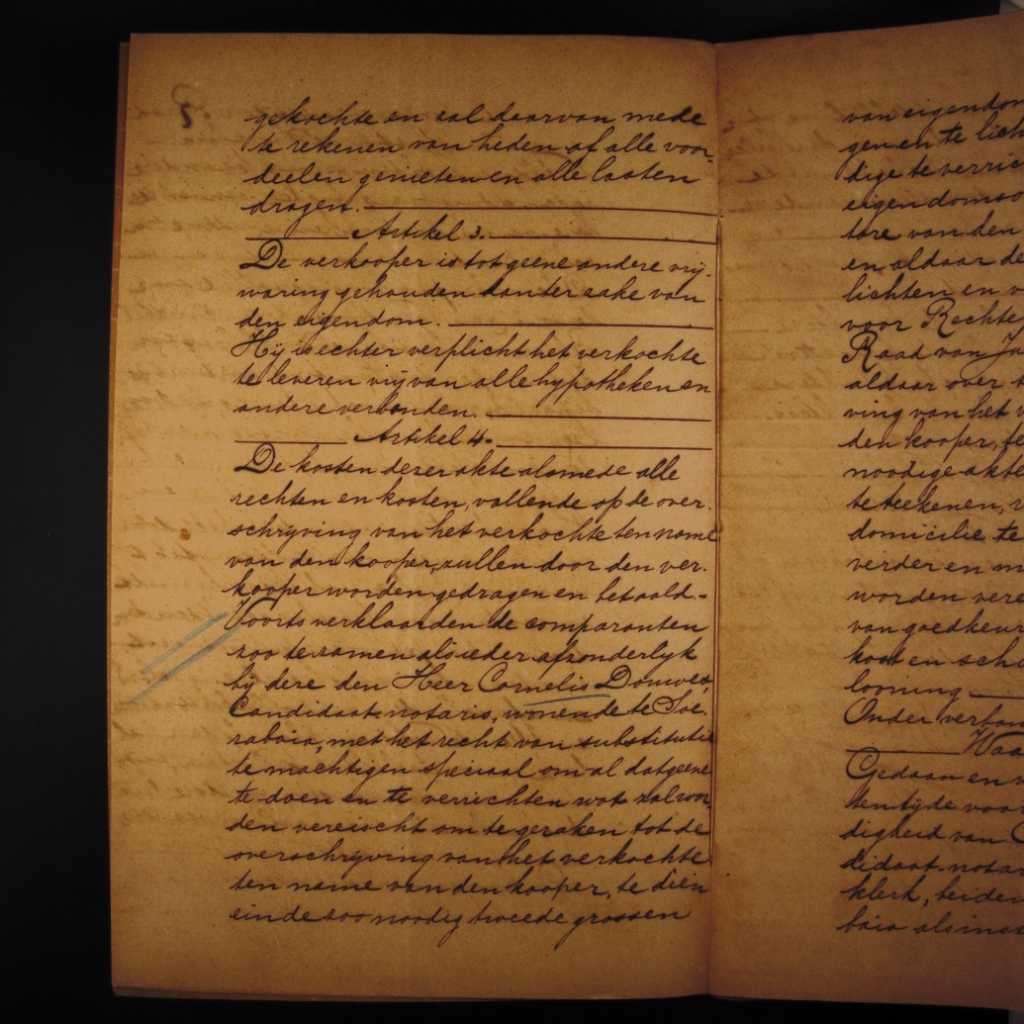 gekochte en zal daarvan mede
te rekenen van heden af alle voor-
deelen genieten en alle lasten
dragen.
Artikel 3.
De verkooper is tot geene andere vrij-
waring gehouden dan ter zake van
den eigendom.
Hij is echter verplicht het verkochte
te leveren vrij van alle hypotheken en
andere verbanden.
Artikel 4.
De kosten dezer akte alsmede alle
rechten en kosten, vallende op de over-
schrijving van het verkochte ten name
van den kooper, zullen door den ver-
kooper worden gedragen en betaald.-
Voorts verklaarden de comparanten
zoo te zamen als ieder afzonderlyk
bij deze den Heer Cornelis Douwes,
Candidaat-notaris, wonende te Soe-
rabaia, met het recht van substitutie
te machtigen speciaal om al datgeene
te doen en te verrichten wat zal wor-
den vereischt om te geraken tot de
overschrijving van het verkochte
ten name van den kooper, te dien
einde zoo noodig tweede grossen
van eigendom
gen en te lich
dige te verric
eigendomso
tore van den
en aldaar de
lichten en v
voor Rechte
Raad van Ju
aldaar over t
ving van het v
den kooper, te
noodige akte
te teekenen, v
domicilie te
verder en m
worden vere
van goedkeur
kost en scha
looning
Onder verban
Waa
Gedaan en v
ten tijde voor
digheid van C
didaat-notar
klerk, beiden
baia als ins